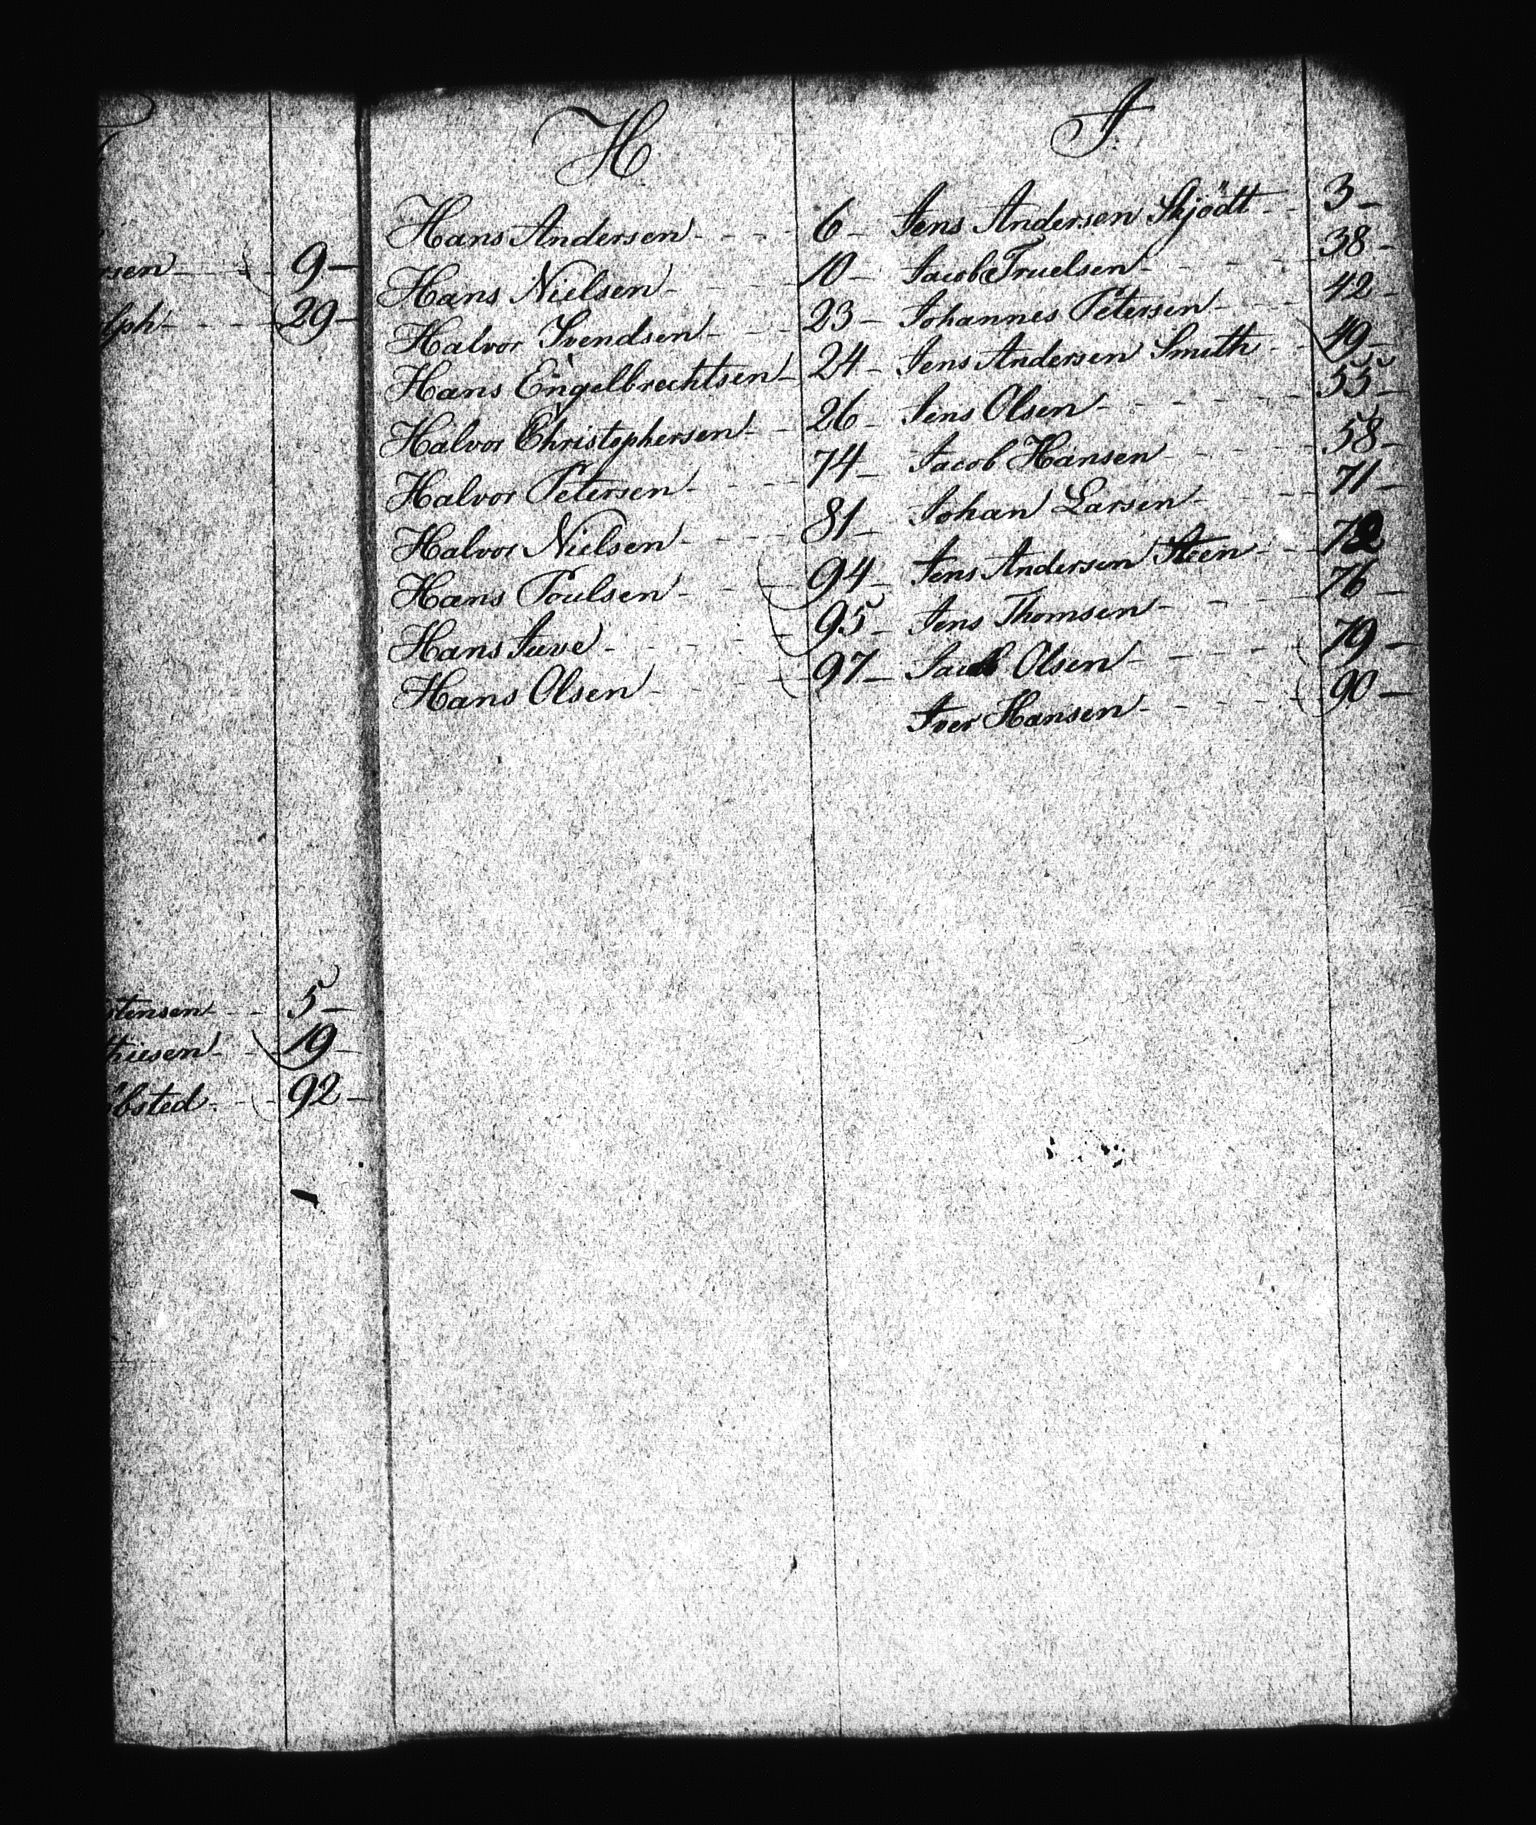 rsen 9
lph 29
stensen 5
thiesen 19
bsted 92
H
Hans Andersen 6
Hans Nielsen 10
Halvor Svendsen 23
Hans Engelbrechtsen 24
Halvor Christophersen 26
Halvor Petersen 74
Halvor Nielsen 81
Hans Poulsen 94
Hans Juve 95
Hans Olsen 97
J:
Jens Andersen Skjödt 3
Jacob Truelsen 38
Johannes Petersen 42
Jens Andersen Smith 49
Jens Olsen 55
Jacob Hansen 58
Johan Larsen 71
Jens Andersen Steen 72
Jens Thomsen 76
Jacob Olsen 79
Iver Hansen 90